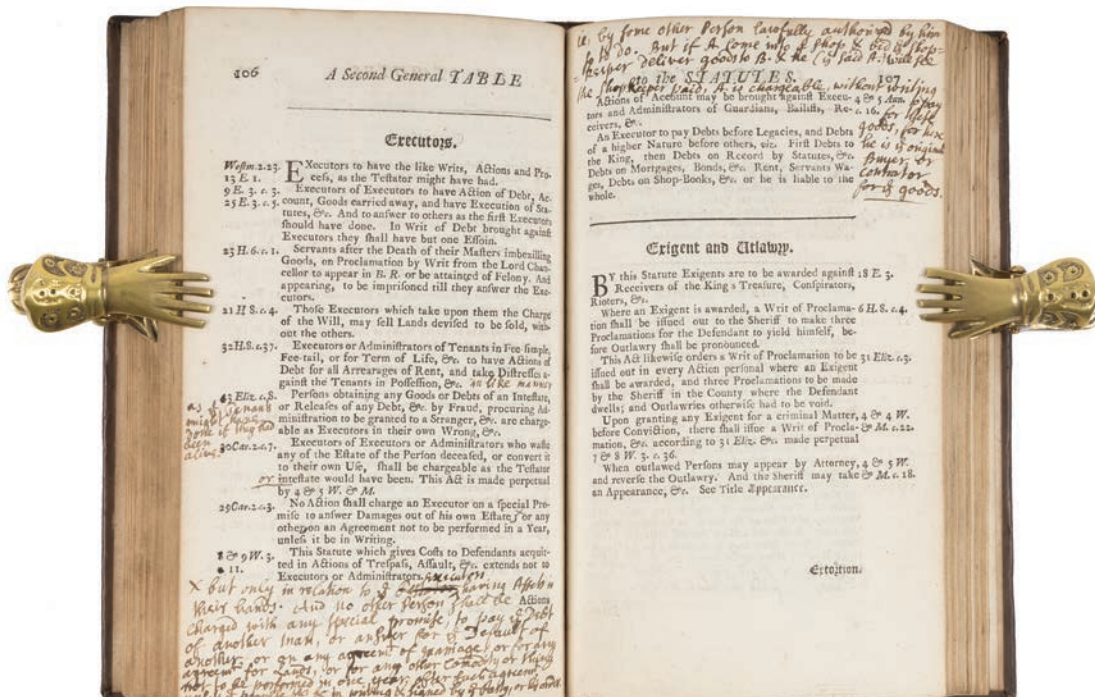 106
A Second General TABLE
Executors.
Westm. 2. 23. EXecutors to have the like Writs, Actions and Pro-
13 E. 1. cess, as the Testator might have had.
9 E. 3. c. 3. Executors of Executors to have Action of Debt, Ac-
25 E. 3. c. 5. count, Goods carried away, and have Execution of Sta-
tutes, &c. And to answer to others as the first Executors
should have done. In Writ of Debt brought against
Executors they shall have but one Essoin.
23 H. 6. c. 1. Servants after the Death of their Masters imbezilling
Goods, on Proclamation by Writ from the Lord Chan-
cellor to appear in B. R. or be attainted of Felony. And
appearing, to be imprisoned till they answer the Exe-
cutors.
21 H 8. c. 4. Those Executors which take upon them the Charge
of the Will, may sell Lands devised to be sold, with-
out the others.
32 H. 8. c. 37. Executors or Administrators of Tenants in Fee-simple,
Fee-tail, or for Term of Life, &c. to have Actions of
Debt for all Arrearages of Rent, and take Distresses a-
gainst the Tenants in Possession, &c. in like manner
43 Eliz. c. 8. Persons obtaining any Goods or Debts of an Intestate,
or Releases of any Debt, &c. by Fraud, procuring Ad-
ministration to be granted to a Stranger, &c. are charge-
able as Executors in their own Wrong, &c.
as
might have
done if they had
been
alive.
30 Car. 2. c. 7. Executors of Executors or Administrators who waste
any of the Estate of the Person deceased, or convert it
to their own Use, shall be chargeable as the Testator
or intestate would have been. This Act is made perpetual
by 4 & 5 W. & M.
29 Car. 2. c. 3. No Action shall charge an Executor on a special Pro-
mise to answer Damages out of his own Estate, or any
other, on an Agreement not to be performed in a Year,
unless it be in Writing.
8 & 9 W. 3. This Statute which gives Costs to Defendants acquit-
11. ted in Actions of Trespass, Assault, &c. extends not to
Executors or Administrators.
executors
X but only in relation to having Assets in
their hands. And no other Person shall be
Actions
Charged with any special promise, to pay Debt
of another man, or answer for Default of
another, or on any agreemt of marriage, or for any
agreemt for Lands, or for any other Comodity or thing
not to be performed in one year after such agreemt
in writing & signed by party, or by
ie, by some other Person lawfully authorized by him
so to do. But if A come into a shop & bid shop-
keeper deliver goods to B. & he said A. will see
the shopkeeper paid, A is chargeable, without writing
to pay
for these
goods, for here
he is original
Buyer or
contractor
for goods.
to the STATUTES. 107
Actions of Account may be brought against Execu- 4 & 5 Ann.
tors and Administrators of Guardians, Bailiffs, Re- c. 16.
ceivers, &c.
An Executor to pay Debts before Legacies, and Debts
of a higher Nature before others, viz. First Debts to
the King, then Debts on Record by Statutes, &c.
Debts on Mortgages, Bonds, &c. Rent, Servants Wa-
ges, Debts on Shop-Books, &c. or he is liable to the
whole.
Exigent and Utlawry.
BY this Statute Exigents are to be awarded against 18 E. 3.
Receivers of the King's Treasure, Conspirators,
Rioters, &c.
Where an Exigent is awarded, a Writ of Proclama- 6 H. 8. c. 4.
tion shall be issued out to the Sheriff to make three
Proclamations for the Defendant to yield himself, be-
fore Outlawry shall be pronounced.
This Act likewise orders a Writ of Proclamation to be 31 Eliz. c. 3.
issued out in every Action personal where an Exigent
shall be awarded, and three Proclamations to be made
by the Sheriff in the County where the Defendant
dwells; and Outlawries otherwise had to be void.
Upon granting any Exigent for a criminal Matter, 4 & 4 W.
before Conviction, there shall issue a Writ of Procla- & M. c. 22.
mation, &c. according to 31 Eliz. &c. made perpetual
7 & 8 W. 3. c. 36.
When outlawed Persons may appear by Attorney, 4 & 5 W.
and reverse the Outlawry. And the Sheriff may take & M. c. 18.
an Appearance, &c. See Title Appearance.
Extortion.